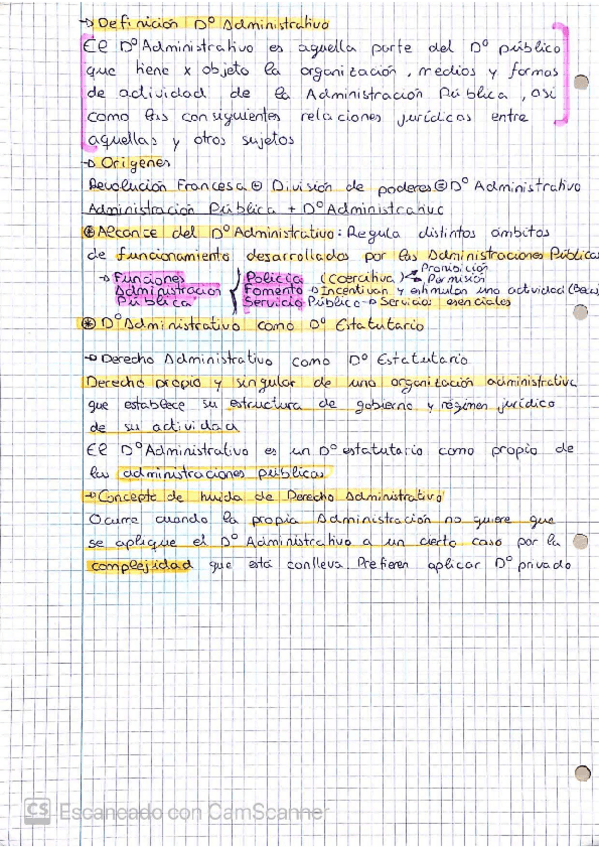 → Definición Dº Administrativo
El Dº Administrativo es aquella parte del Dº público
que tiene x objeto la organización, medios y formas
de actividad de la Administración Pública, así
como las consiguientes relaciones jurídicas entre
aquellas y otros sujetos
→ Orígenes
Revolución Francesa División de poderes Dº Administrativo
Administración Pública + Dº Administrativo
Alcance del Dº Administrativo: Regula distintos ámbitos
de funcionamiento desarrollados por las Administraciones Públicas
→ Funciones Administración Pública { Policía (Coercitiva) → Prohibición → Permisión
Fomento → Incentivan y estimulan una actividad
Servicio Público → Servicios esenciales
Dº Administrativo como Dº Estatutario
→ Derecho Administrativo como Dº Estatutario
Derecho propio y singular de una organización administrativa
que establece su estructura de gobierno y régimen jurídico
de su actividad
El Dº Administrativo es un Dº estatutario como propio de
las administraciones públicas
→ Concepto de huida de Derecho Administrativo
Ocurre cuando la propia Administración no quiere que
se aplique el Dº Administrativo a un cierto caso por la
complejidad que está conlleva. Prefieren aplicar Dº privado
CS Escaneado con CamScanner